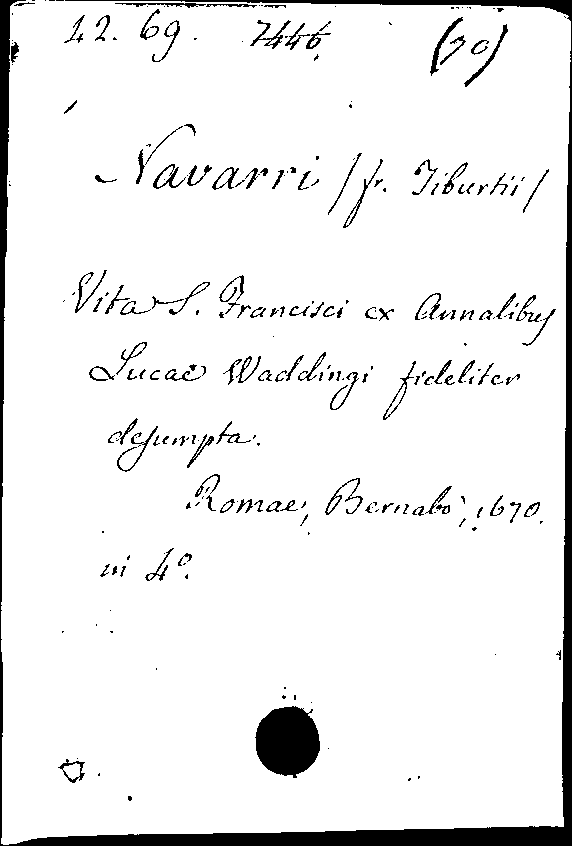 42. 69. 7446. (70)
Navarri /fr. Tiburtii/
Vita S. Francisci ex Annalibus
Lucae Waddingi fideliter
desumpta.
Romae, Bernabò, 1670.
in 4º.